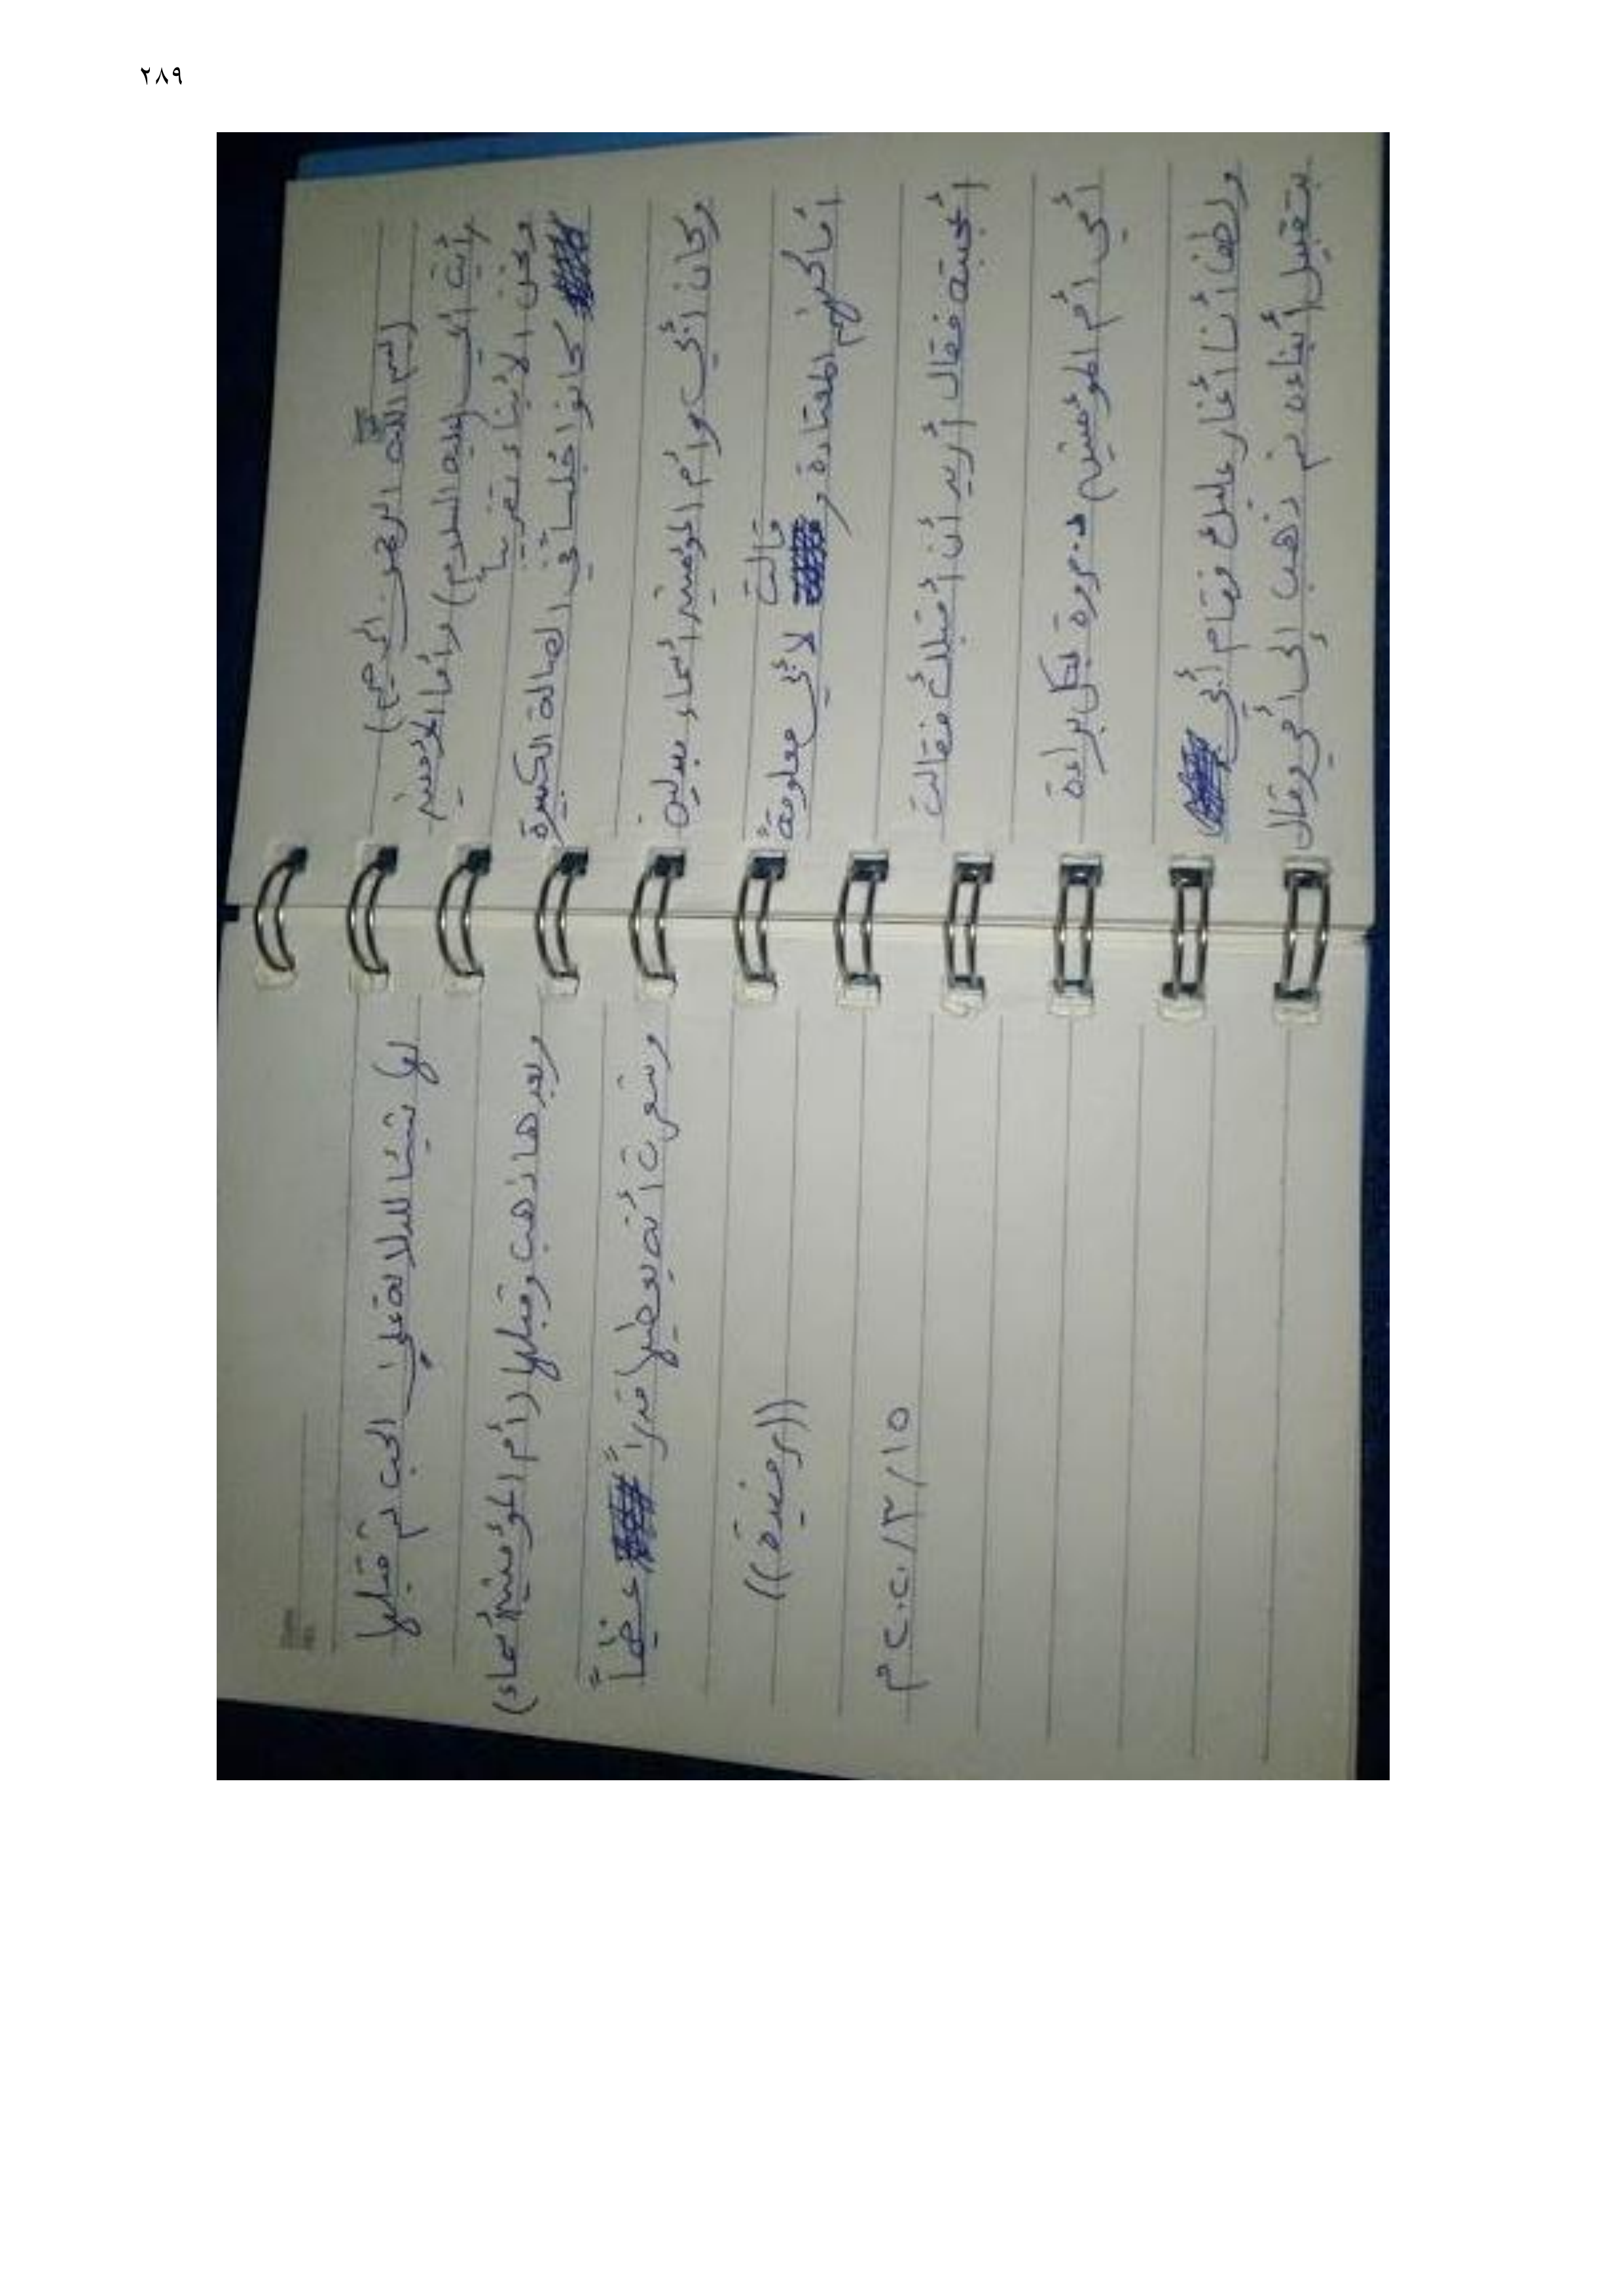 ٢٨٩
(بسم الله الرحمن الرحيم)
رأيت أبي (عليه السلام) وأما المؤمنين
ونحن الأبناء تقريباً
كانوا جلسا في الصالة الكبيرة
وكان أبي وأم المؤمنين أسماء
أماكنهم المعتادة و قالت لأبي معلومة
أعجبته فقال أريد أن أقبلك فقالت
أمي أم المؤمنين مروة بكل براءة
وأنا أغار عليك فقام أبي
بتقبيل أبناءه ثم ذهب إلى أمي وقال
لها شيئا للدلالة على الحب ثم قبلها
وبعدها ذهب وقبلها (أم المؤمنين أسماء)
وشعرت أنه يعطيها قدراً عظيماً
((رضية))
١٥/٣/٢٠٢٠م